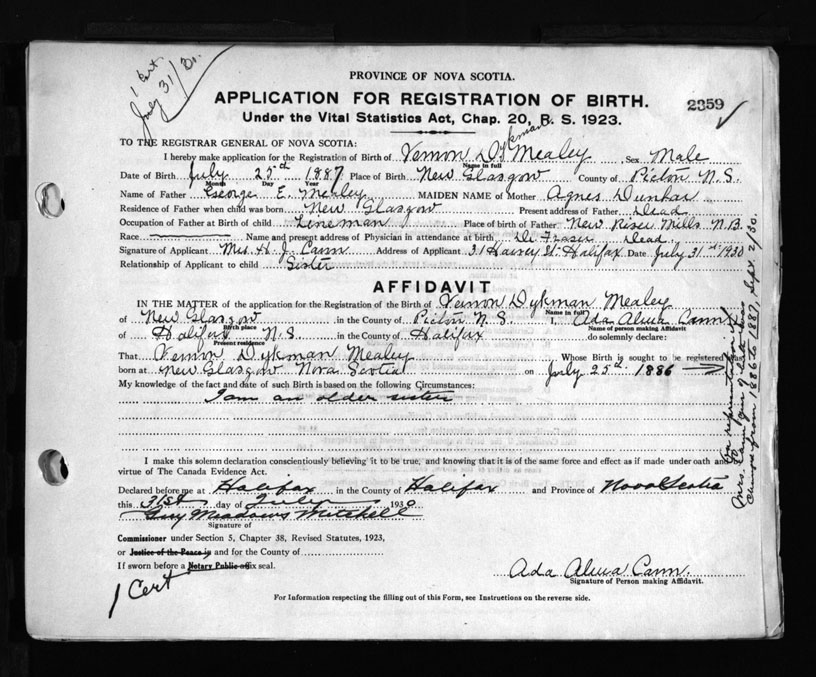 1 Cert.
July 31/30.
PROVINCE OF NOVA SCOTIA.
APPLICATION FOR REGISTRATION OF BIRTH.
2359
Under the Vital Statistics Act, Chap. 20, R. S. 1923.
TO THE REGISTRAR GENERAL OF NOVA SCOTIA:
I hereby make application for the Registration of Birth of Vernon Dykman Mealey Sex Male
Name in full
Date of Birth July 25th 1887 Place of Birth New Glasgow County of Pictou N.S.
Month Day Year
Name of Father George E. Mealey MAIDEN NAME of Mother Agnes Dunbar
Residence of Father when child was born New Glasgow Present address of Father Dead
Occupation of Father at Birth of child Lineman Place of birth of Father New River Mills N.B.
Race Name and present address of Physician in attendance at birth Dr Fraser Dead
Signature of Applicant Mrs. H. J. Cann Address of Applicant 31 Harvey St. Halifax Date July 31st 1930
Relationship of Applicant to child Sister
AFFIDAVIT
IN THE MATTER of the application for the Registration of the Birth of Vernon Dykman Mealey
Name in full
of New Glasgow in the County of Pictou N.S. I, Ada Alwa Cann
Birth place Name of person making Affidavit
of Halifax N.S. in the County of Halifax do solemnly declare:
Present residence
That Vernon Dykman Mealey Whose Birth is sought to be registered was
born at New Glasgow Nova Scotia on July 25th 1886
My knowledge of the fact and date of such Birth is Based on the following Circumstances:
I am an older sister
I make this solemn declaration conscientiously believing it to be true, and knowing that it is of the same force and effect as if made under oath and
virtue of The Canada Evidence Act.
Declared before me at Halifax in the County of Halifax and Province of Nova Scotia
this 31st day of July 1930
Guy Meadows Mitchell
Signature of
Commissioner under Section 5, Chapter 38, Revised Statutes, 1923,
or Justice of the Peace in and for the County of
If sworn before a Notary Public affix seal.
Ada Alwa Cann.
Signature of Person making Affidavit.
1 Cert
For Information respecting the filling out of this Form, see Instructions on the reverse side.
On representation of
Mrs. Cann year of birth was
changed from 1886 to 1887, Sept. 2/30.